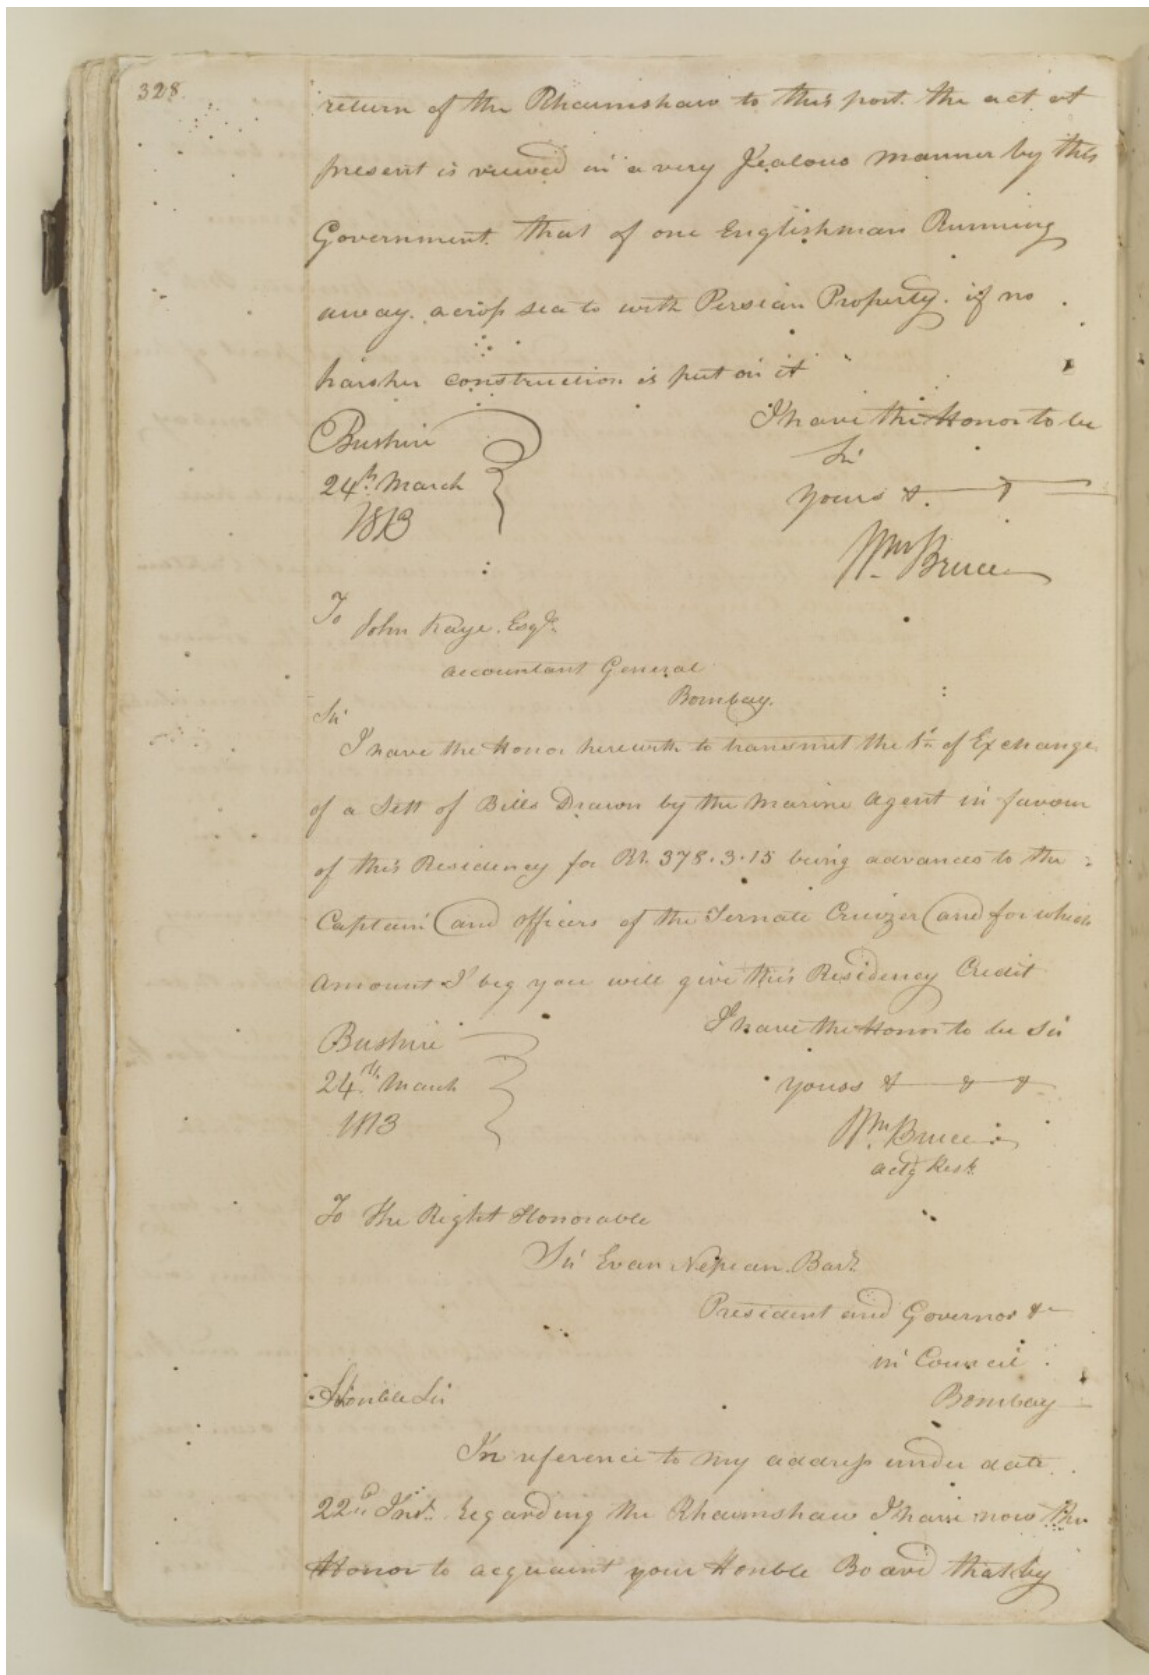 328
return of the Rhaimshaw to this port. the act at
present is viewed in a very Jealous manner by this
Government. that of one Englishman Running
away. across sea to with Persian Property. if no
harsher construction is put on it
I have the Honor to be
Sir
yours &.
Wm Bruce
Bushire
24th March
1813
To
John Kaye. Esqr.
accountant General
Bombay.
Sir
I have the Honor herewith to transmit the 1st of Exchange
of a Sett of Bills Drawn by the Marine Agent in favour
of this Residency for Rs. 378.3.15 being advances to the
Captain and officers of the Ternate Cruizer and for which
Amount I beg you will give this Residency Credit
I have the Honor to be Sir
yours & & &
Wm. Bruce
actg Rest.
Bushire
24th March
1813
To The Right Honorable
Sir Evan Nepean. Bart.
President and Governor &
in Council
Bombay
Honble Sir
In reference to my address under date
22d Inst. Regarding the Rhaimshaw I have now the
Honor to acquaint your Honble Board that by